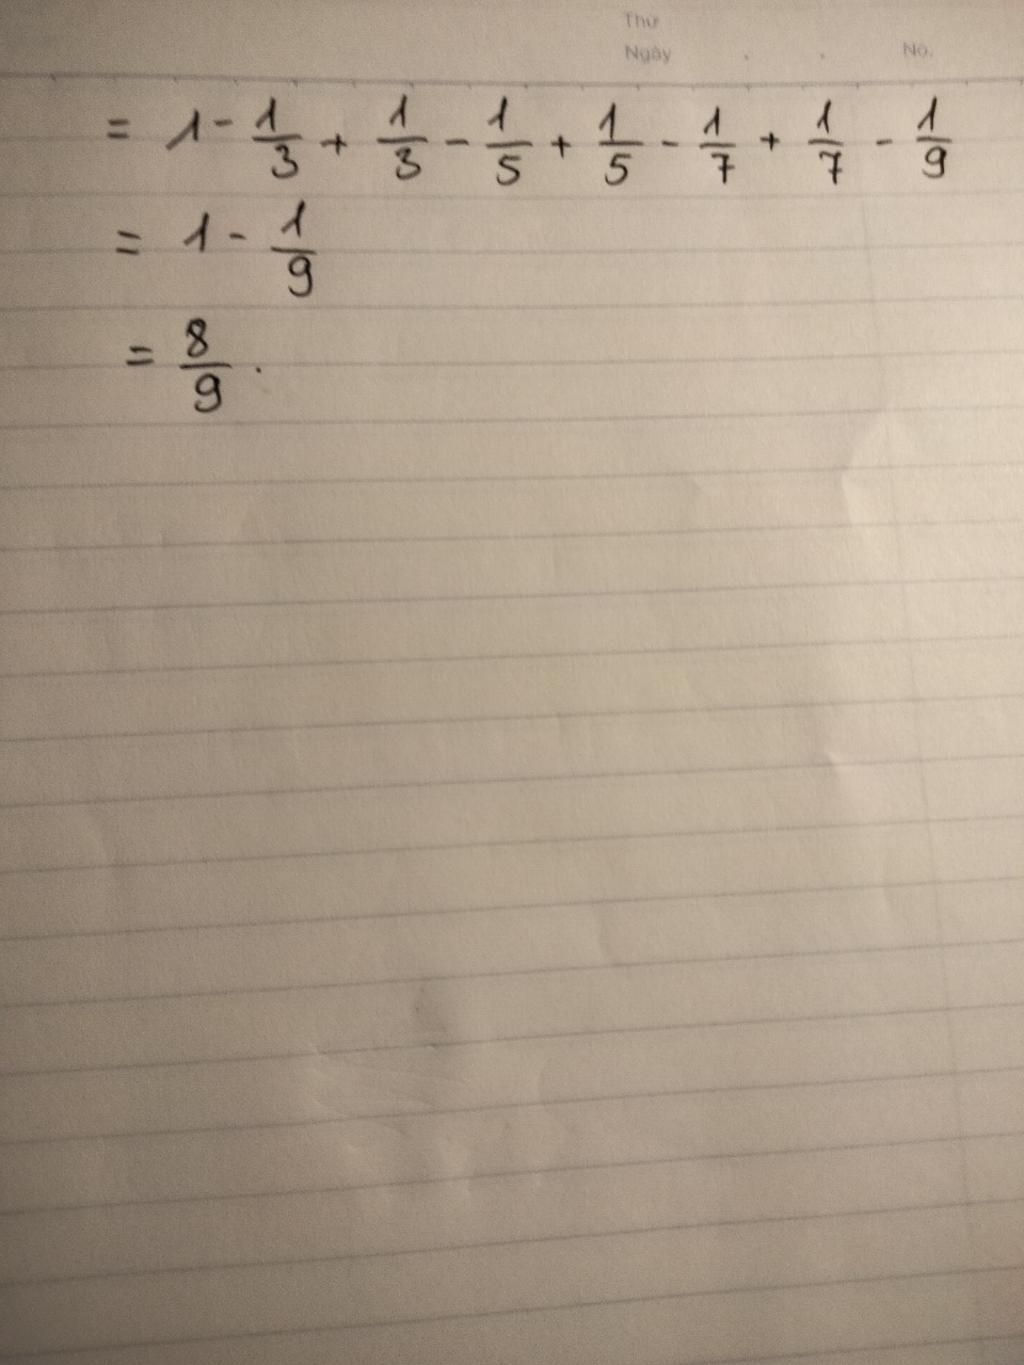 Thứ
Ngày . . No.
= 1 - 1/3 + 1/3 - 1/5 + 1/5 - 1/7 + 1/7 - 1/9
= 1 - 1/9
= 8/9 .